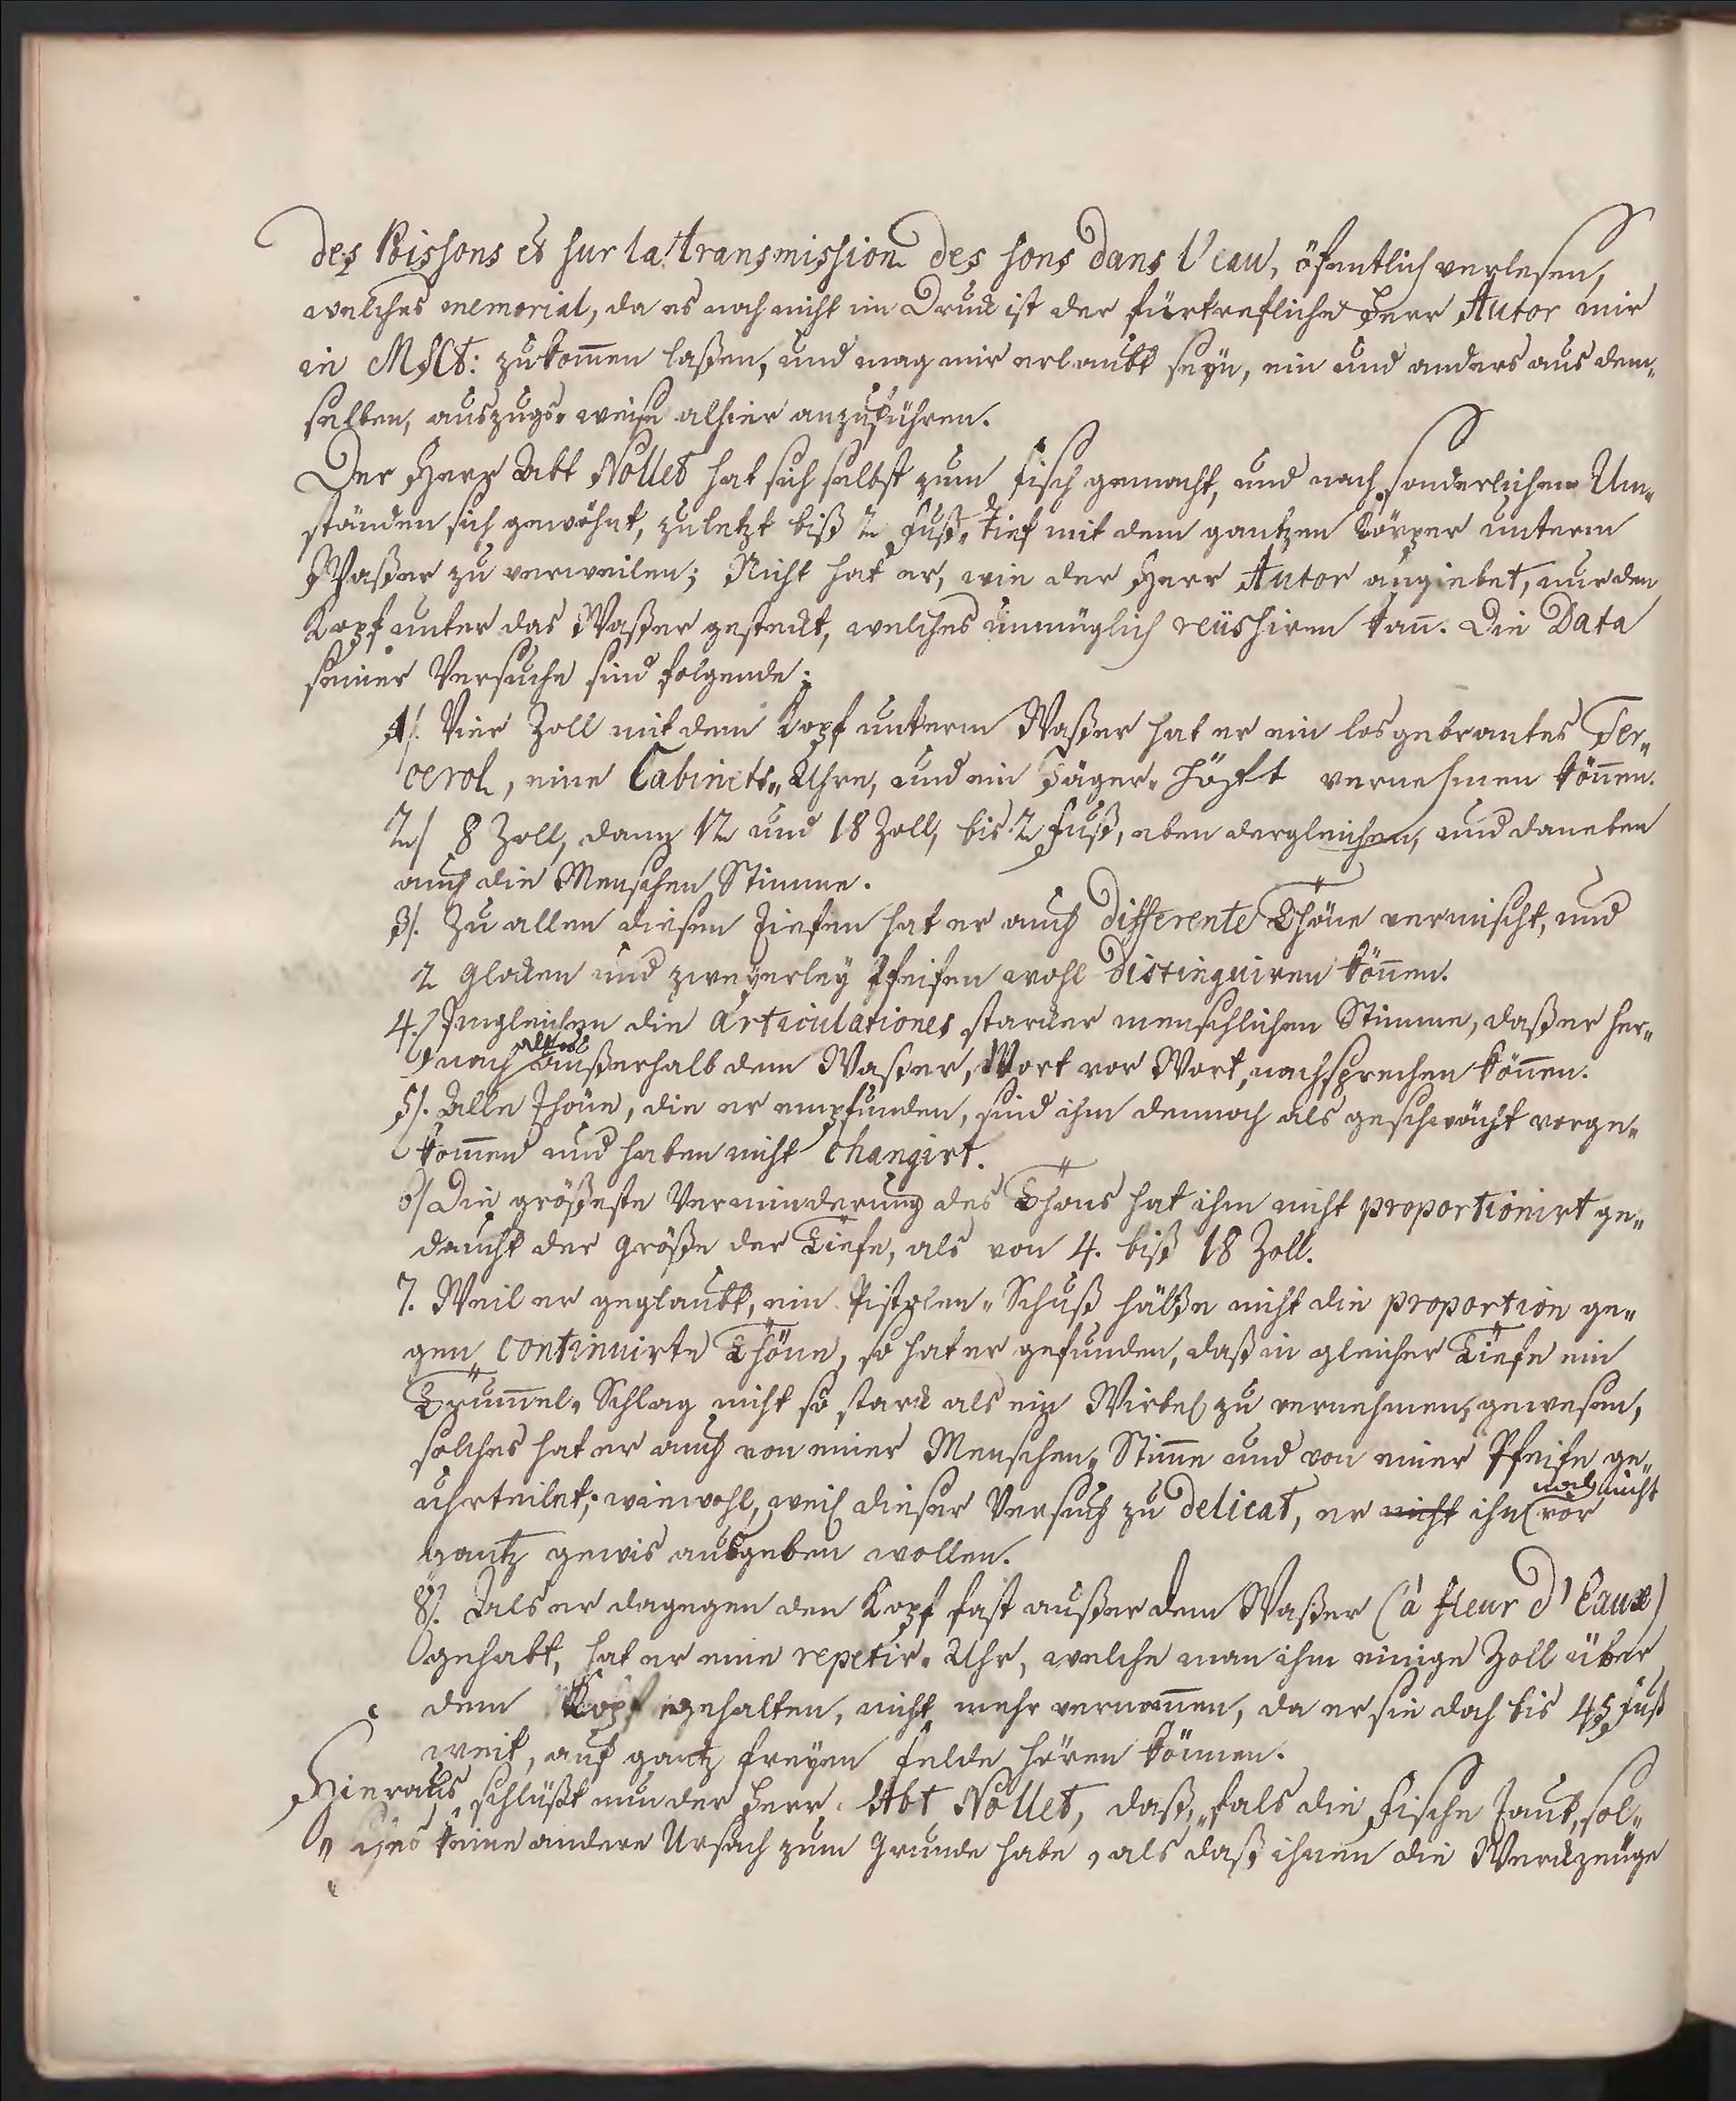 des Poissons et sur la transmission des sons dans l'eau, öfentlich verlesen,
welches memorial, da es noch nicht im Druck ist der fürtrefliche Herr Autor mir
in MSCt: zukom̄en laßen, und mag mir erlaubt seyn, ein und anders aus dem„
selben, auszugs-weise alhier anzuführen.
Der Herr Abt Nollet hat sich selbst zum Fisch gemacht, und nach sonderlichen Um„
ständen sich gewöhnt, zuletzt biß 2 Fuß-tief mit dem gantzen Körper unterm
Waßer zu verweilen; Nicht hat er, wie der Herr Autor angiebet, nur den
Kopf unter das Waßer gesteckt, welches unmüglich reüshiren kan̄. Die Data
seiner Versuche sind folgende:
1/. Vier Zoll mit dem Kopf unterm Waßer hat er ein losgebrantes Ter„
cerol, eine Cabinets„Uhre, und ein Jäger- vernehmen kön̄en.
2/ 8 Zoll, dann 12 und 18 Zoll, bis 2 Fuß, eben dergleichen, und daneben
auch die Menschen Stimme.
3/. Zu allen diesen Tiefen hat er auch differente Thöne vermischt, und
2 Glocken und zweyerley Pfeifen wohl distinguiren kön̄en.
4./ Imgleichen die Articulationes starcker menschlichen Stimme, daßer her„
nach alles außerhalb dem Waßer, Wort vor Wort, nachsprechen kön̄en.
5/. Alle Thöne, die er empfunden, sind ihm dennoch als geschwächt vorge„
kom̄en und haben nicht changirt.
6/ Die größeste Verminderung des Thons hat ihm nicht proportionirt ge„
deucht der Größe der Tiefe, als von 4. biß 18 Zoll.
7. Weil er geglaubt, ein Pistolen-Schuß hätte nicht die proportion ge„
gen continuirte Thöne, so hat er gefunden, daß in gleicher Tiefe ein
Trum̄el-Schlag nicht so starck als ein Wirbel zu vernehmen gewesen,
solches hat er auch von einer Menschen„Stim̄e und von einer Pfeife ge„
uhrteilet; wiewohl, weil dieser Versuch zu delicat, er nicht ihn noch nicht vor
gantz gewis ausgeben wollen.
8/. Als er dagegen den Kopf fast außer dem Waßer (à fleur d'Eaux)
gehabt, hat er eine repetir-Uhr, welche man ihm einige Zoll über
dem Kopf gehalten, nicht mehr vernom̄en, da er sie doch bis 45 Fuß
weit, auf gantz freyen Felde hören können.
Hieraus schlüßt nun der Herr Abt Nollet, daß, „fals die Fische Taub, sol„
„ches keine andere Ursach zum Grunde habe, als daß ihnen die Werckzeuge